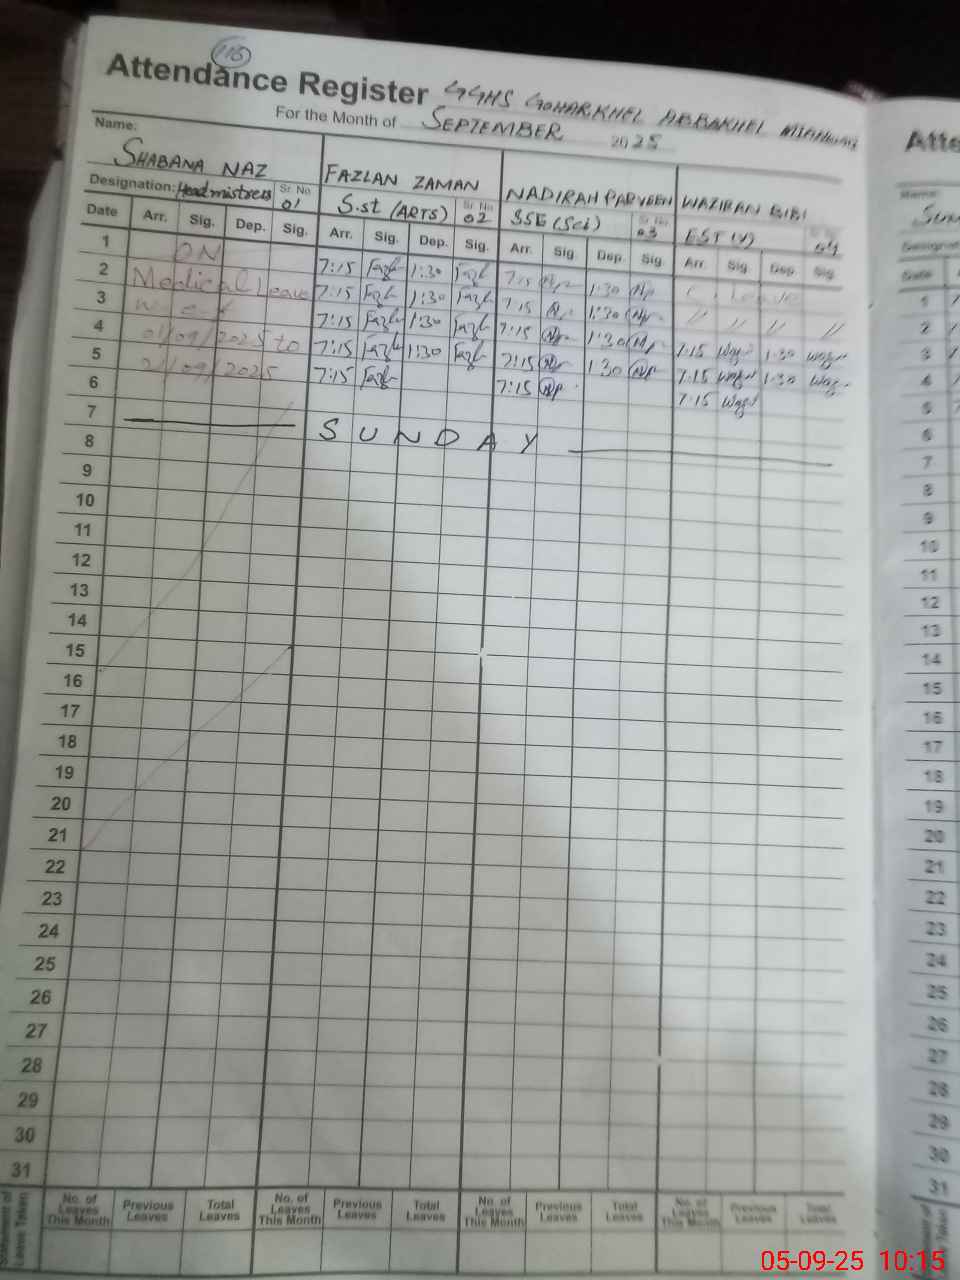 116
Attendance Register GGHS GOHARKHEL ABBAKHEL MIANWALI
For the Month of SEPTEMBER 2025
Name:
SHABANA NAZ FAZLAN ZAMAN NADIRAH PARVEEN WAZIRAN BIBI
Designation: Headmistress Sr. No 01 S.st (ARTS) Sr. No 02 SSE (Sci) Sr. No. 03 EST (V) 04
Date Arr. Sig. Dep. Sig. Arr. Sig. Dep. Sig. Arr. Sig. Dep. Sig. Arr. Sig. Dep. Sig.
1 ON 7:15 1:30 7:15 1:30 Leave
2 Medical Leave 7:15 1:30 7:15 1:30 〃 〃 〃 〃
3 w.e.f 7:15 1:30 7:15 1:30 7:15 1:30
4 01/09/2025 to 7:15 1:30 7:15 1:30 7:15 1:30
5 21/09/2025 7:15 7:15 7:15
6
7 SUNDAY
8
9
10
11
12
13
14
15
16
17
18
19
20
21
22
23
24
25
26
27
28
29
30
31
Statement of Leave Taken
No. of Leaves This Month Previous Leaves Total Leaves No. of Leaves This Month Previous Leaves Total Leaves No. of Leaves This Month Previous Leaves Total Leaves No. of Leaves This Month Previous Leaves Total Leaves
Atte
Name:
Designation
Date
1
2
3
4
5
6
7
8
9
10
11
12
13
14
15
16
17
18
19
20
21
22
23
24
25
26
27
28
29
30
31
05-09-25 10:15